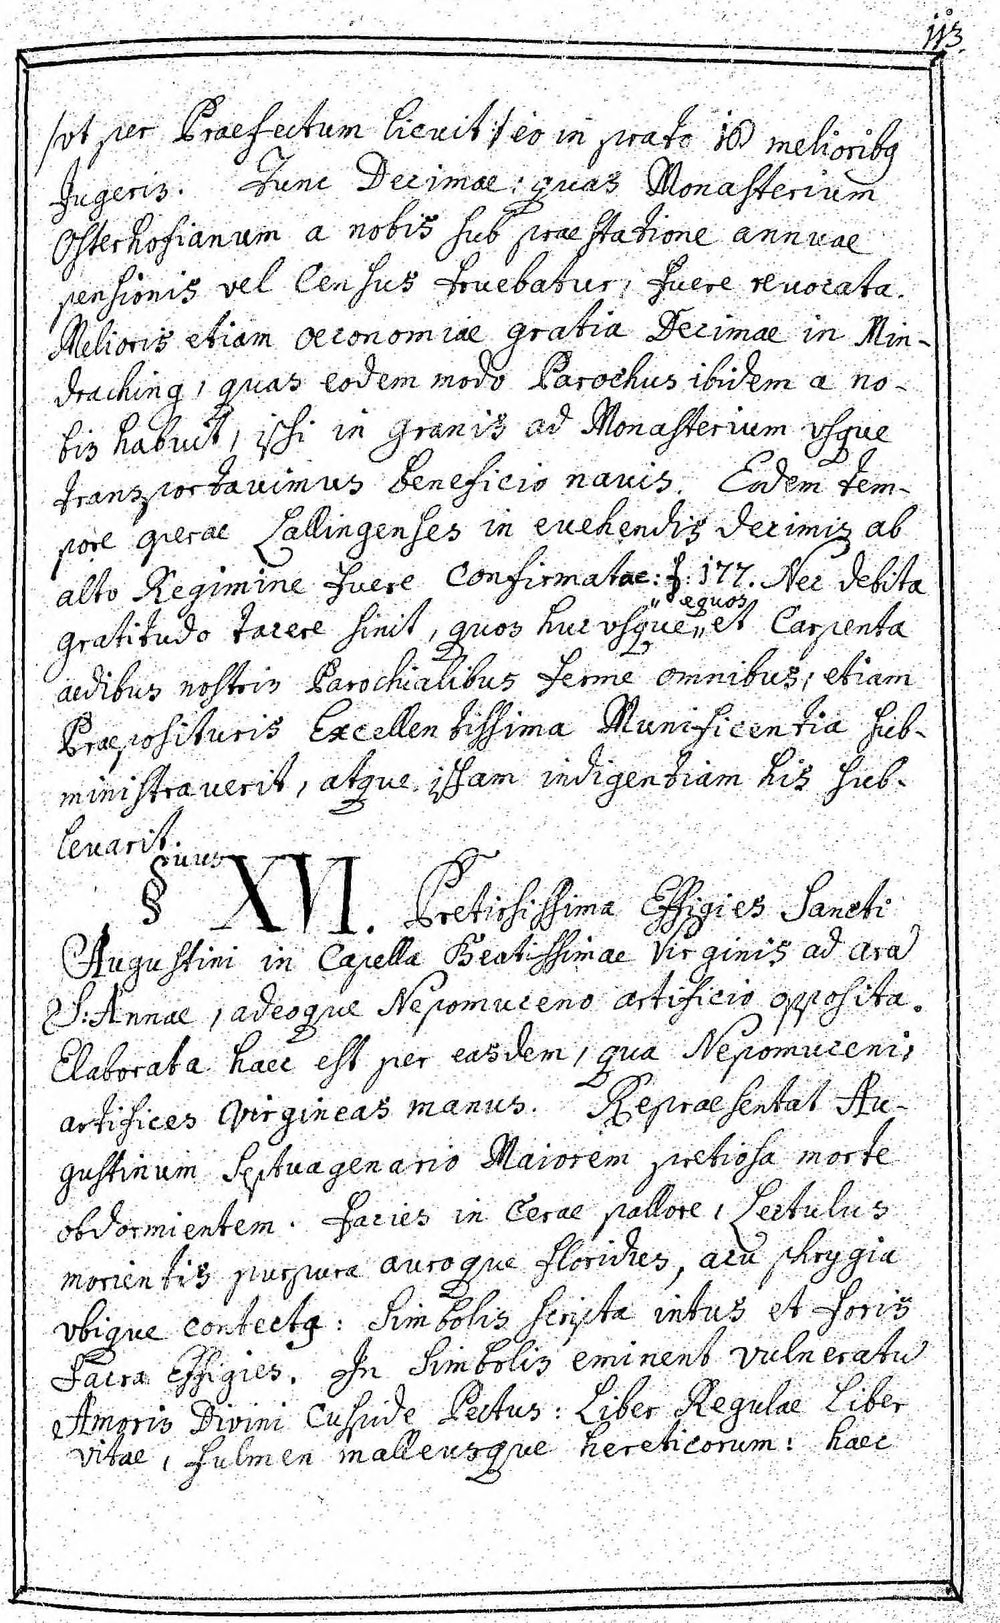 113.
/vt per Praefectum licuit/ eo in prato 16 melioribq
Jugeris. Tunc Decimae: quas Monasterium
Osterhofianum a nobis sub praestatione annuae
pensionis vel Census fruebatur, fuere reuocata.
Melioris etiam oeconomiae gratia Decimae in Min-
draching, quas eodem modo Parochus ibidem a no-
bis habuit, ipsi in Granis ad Monasterium vsque
transportauimus beneficio nauis. Eodem tem-
pore operae Lallingenses in euehendis decimis ab
alto Regimine fuere Confirmatae: f: 177. Nec debita
equos
gratitudo tacere sinit, quos huc vsque „ et Carpenta
aedibus nostris Parochialibus ferme omnibus, etiam
Praeposituris Excellentissima Munificentia sub-
ministrauerit, atque ipsam indigentiam his sub-
leuarit.
§uus XVI. Pretiosissima Effigies Sancti
Augustini in Capella Beatissimae Virginis ad ara
S: Annae, adeoque Nepomuceno artificio opposita.
Elaborata haec est per easdem, qua Nepomuceni,
artifices Virgineas manus. Repraesentat Au-
gustinum Septuagenario Maiorem pretiosa morte
obdormientem. Facies in Cerae pallore, Lectulus
morientis purpura auroque floridus, acu phrygia
vbique contectq: Simbolis scripta intus et foris
Sacra Effigies. In Simbolis eminent vulneratu
Amoris Divini Cuspide Pectus: Liber Regulae Liber
vitae, fulmen malleusque hereticorum: haec